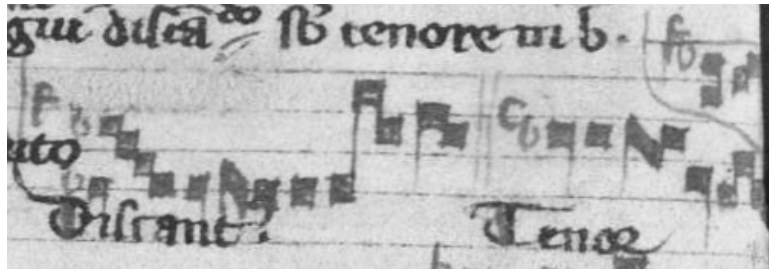 gui discā do sb tenore in b.
ato
Discant
Tenor